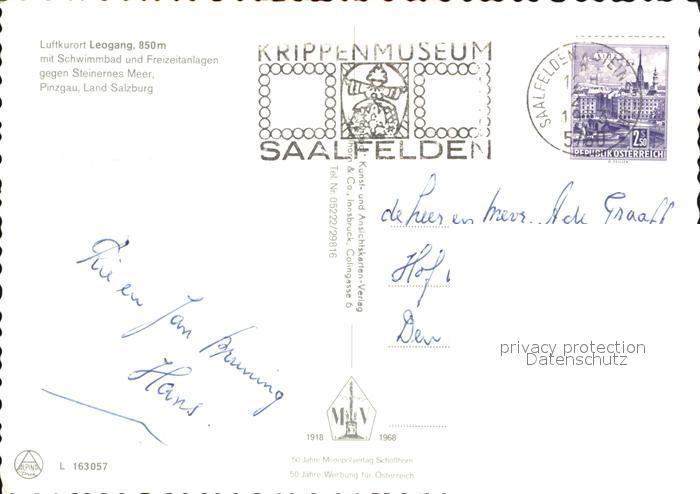 Luftkurort Leogang, 850 m
mit Schwimmbad und Freizeitanlagen
gegen Steinernes Meer,
Pinzgau, Land Salzburg
KRIPPENMUSEUM
SAALFELDEN
SAALFELDEN
5760
2.50
REPUBLIK ÖSTERREICH
Kunst- und Ansichtskarten-Verlag
& Co., Innsbruck, Colingasse 6
Tel. Nr. 05222/29816
de heer en mevr. A de Graaff
Hof
Den
privacy protection
Datenschutz
en Jan Bruning
Hans
M V
1918 1968
50 Jahre Monopolverlag Schöllhorn
50 Jahre Werbung für Österreich
ALPINA
L 163057